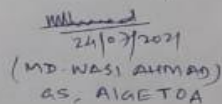 24/07/2021
(MD. WASI AHMAD)
GS, AIGETOA